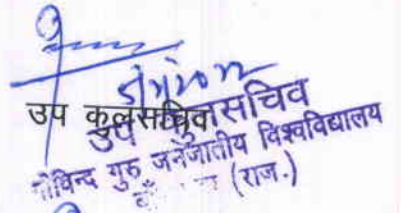 उप कुलसचिव
उप कुलसचिव
गोविन्द गुरु जनजातीय विश्वविद्यालय
(राज.)